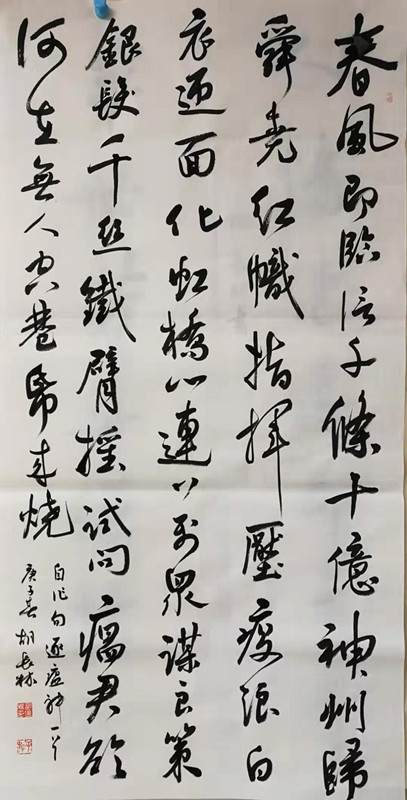 春風即臨信千條十億神州歸
舜堯紅幟指揮壓疫浪白
衣迎面化虹橋心連心到眾謀良策
銀髮千丝鐵臂摇試问瘟君欲
何在無人空巷帚来燒
自作句逐瘟神一首
庚子春胡長林